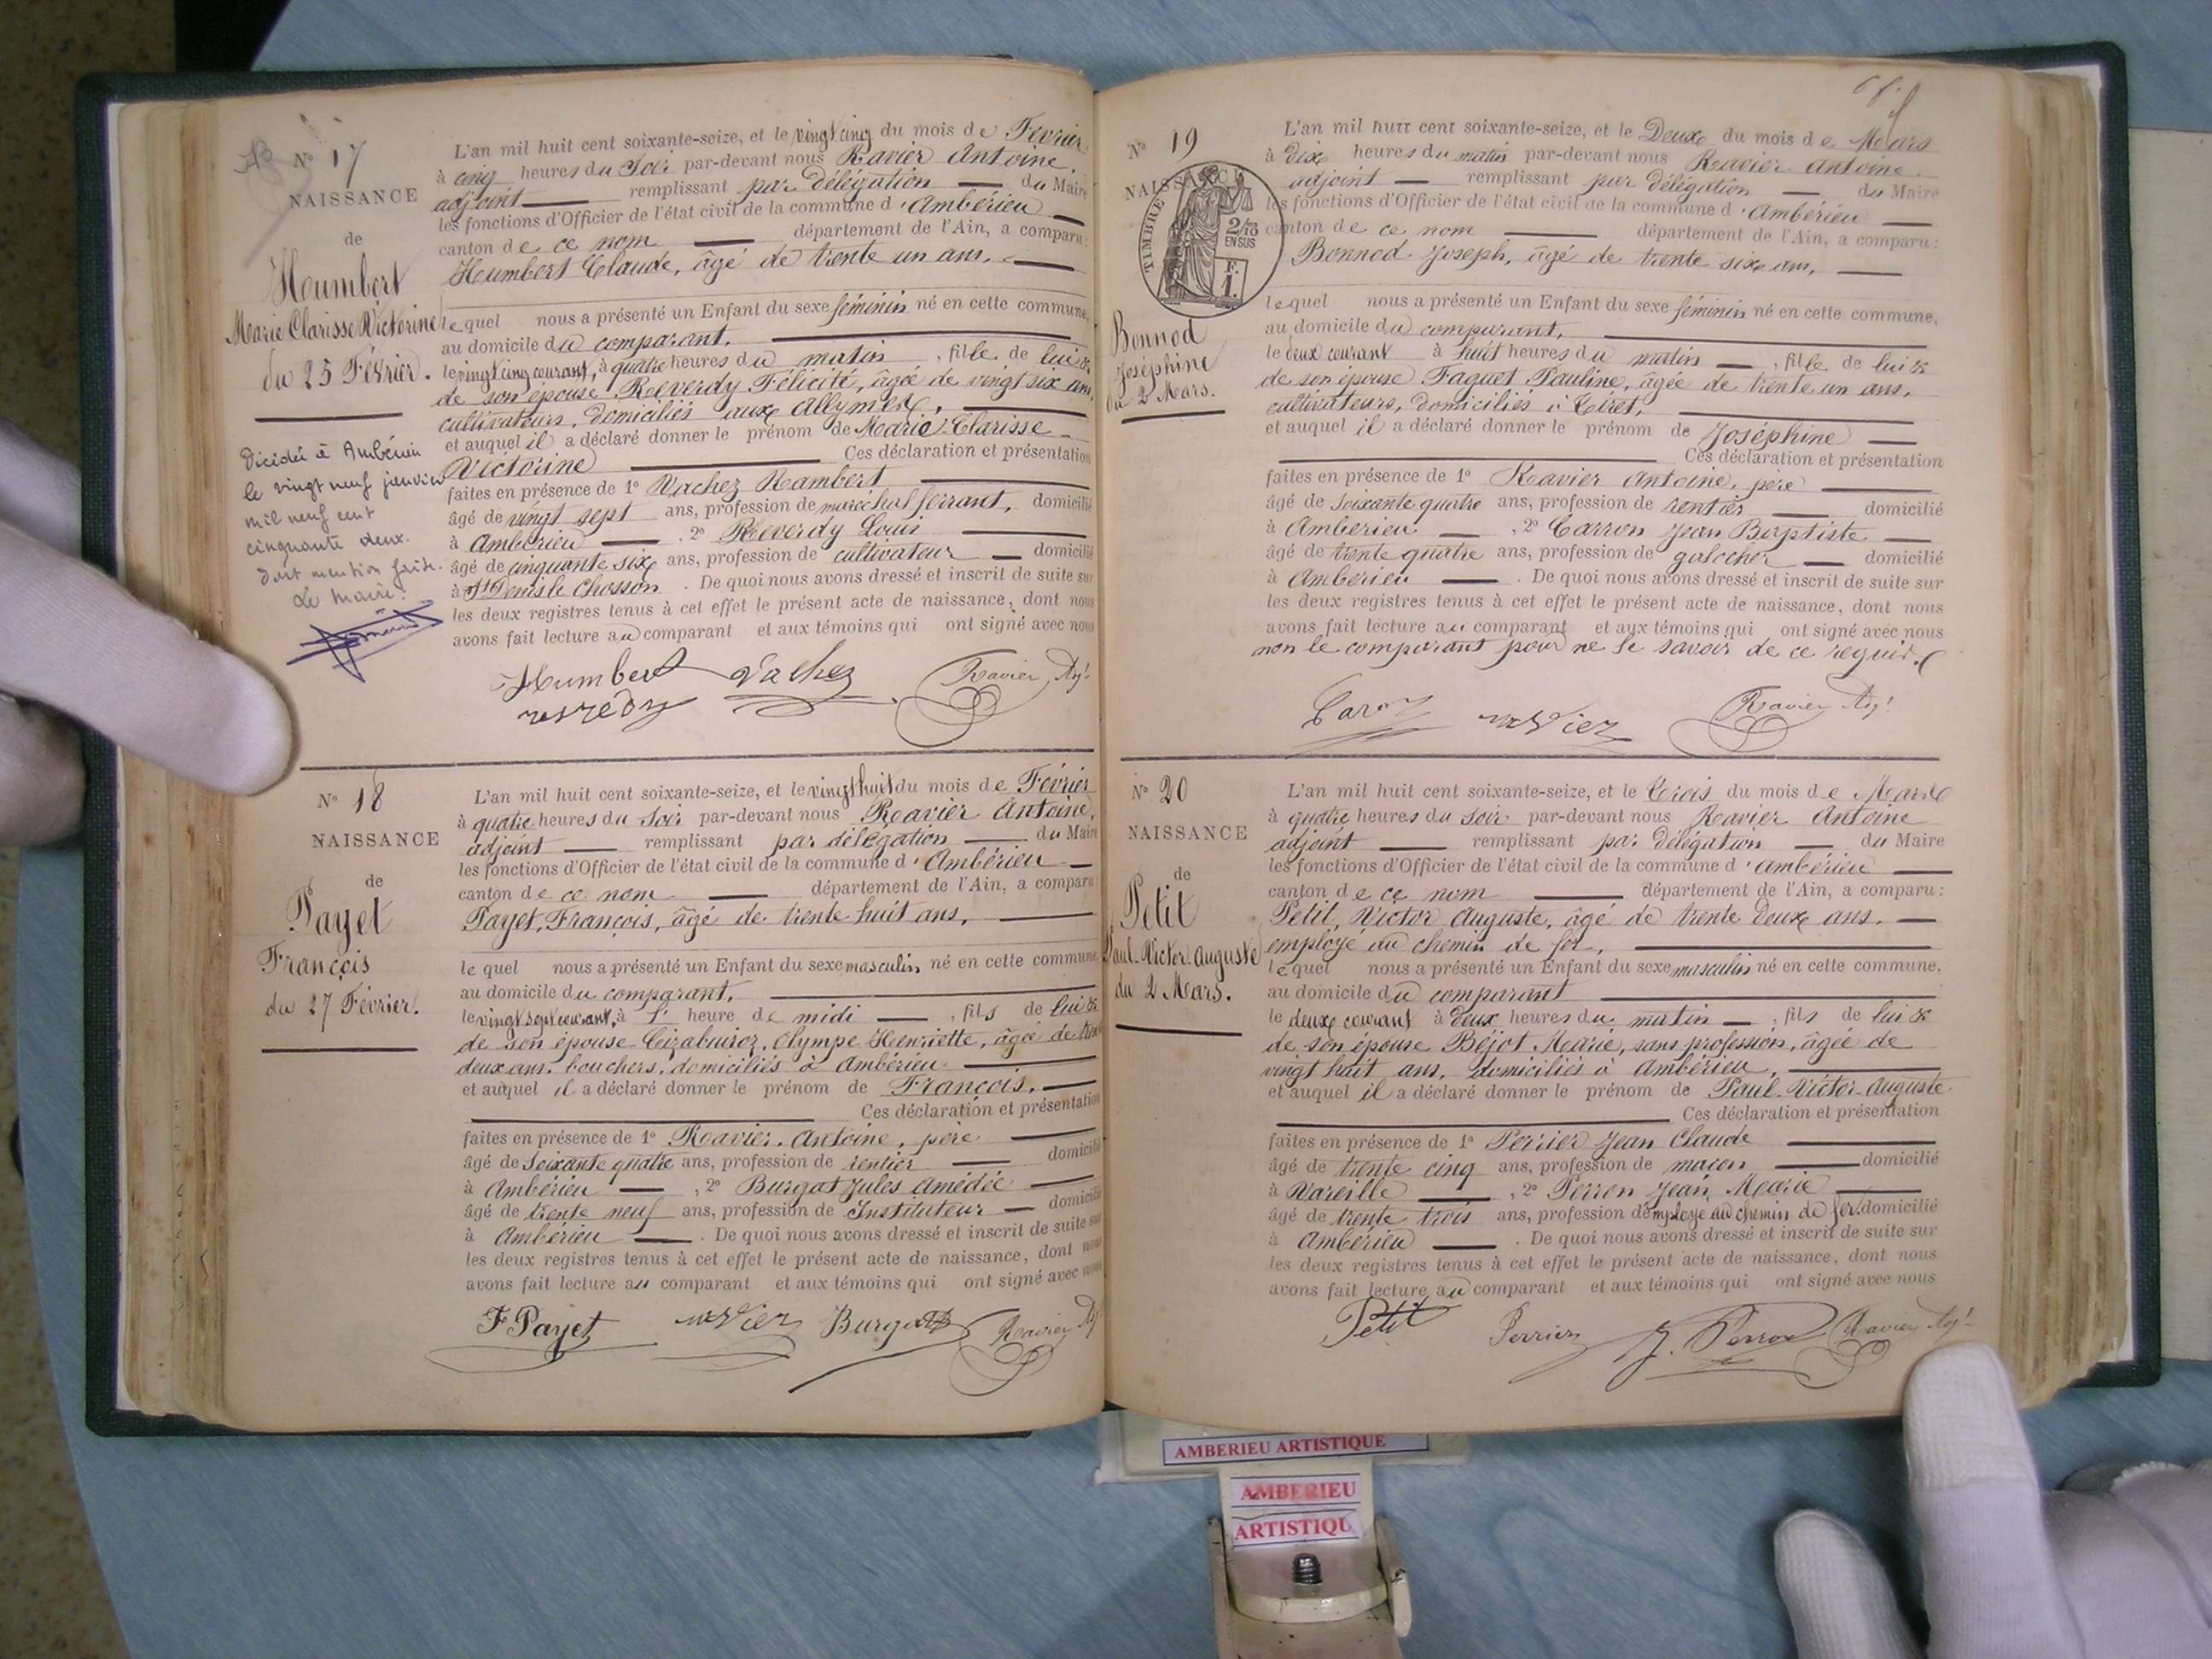 N° 17
NAISSANCE
de
Humbert
Marie Clarisse Victorine
du 25 Février.
Décédée à Ambérieu
le vingt neuf janvier
mil neuf cent
cinquante deux.
Dont mention faite.
Le Maire:
L'an mil huit cent soixante-seize, et le vingt cinq du mois de Février
à cinq heures du Soir par-devant nous Ravier Antoine,
adjoint remplissant par délégation du Maire
les fonctions d'Officier de l'état civil de la commune d'Ambérieu
canton de ce nom département de l'Ain, a comparu:
Humbert Claude, âgé de trente un ans,
lequel nous a présenté un Enfant du sexe féminin né en cette commune,
au domicile du comparant,
le vingt cinq courant, à quatre heures du matin, fille de lui &
de son épouse Reverdy Félicité, âgée de vingt six ans,
cultivateurs, domiciliés aux Allymes,
et auquel il a déclaré donner le prénom de Marie Clarisse
Victorine Ces déclaration et présentation
faites en présence de 1° Vachez Rambert
âgé de vingt sept ans, profession de maréchal ferrant, domicilié
à Ambérieu, 2° Reverdy Louis
âgé de cinquante six ans, profession de cultivateur domicilié
à St Denis le Chosson. De quoi nous avons dressé et inscrit de suite sur
les deux registres tenus à cet effet le présent acte de naissance, dont nous
avons fait lecture au comparant et aux témoins qui ont signé avec nous
Humbert Vachez Ravier Adj!
reverdy
N° 18
NAISSANCE
de
Payet
François
du 27 Février.
L'an mil huit cent soixante-seize, et le vingt huit du mois de Février
à quatre heures du Soir par-devant nous Ravier Antoine,
adjoint remplissant par délégation du Maire
les fonctions d'Officier de l'état civil de la commune d'Ambérieu
canton de ce nom département de l'Ain, a comparu:
Payet, François, âgé de trente huit ans,
lequel nous a présenté un Enfant du sexe masculin né en cette commune
au domicile du comparant,
le vingt sept courant, à 1' heure de midi, fils de lui &
de son épouse Olympe Henriette, âgée de
deux ans, bouchers, domiciliés à Ambérieu
et auquel il a déclaré donner le prénom de François,
Ces déclaration et présentation
faites en présence de 1° Ravier, Antoine, père
âgé de soixante quatre ans, profession de rentier domicilié
à Ambérieu, 2° Burgat Jules Amédée
âgé de trente neuf ans, profession de Instituteur domicilié
à Ambérieu. De quoi nous avons dressé et inscrit de suite sur
les deux registres tenus à cet effet le présent acte de naissance, dont nous
avons fait lecture au comparant et aux témoins qui ont signé avec nous
F Payet ravier Burgat Ravier Adj
N° 19
NAISSANCE
TIMBRE
2/10
EN SUS
F.
1.
Bonnod
Joséphine
du 2 Mars.
L'an mil huit cent soixante-seize, et le Deux du mois de Mars
à Dix heures du matin par-devant nous Ravier Antoine
adjoint remplissant par délégation du Maire
les fonctions d'Officier de l'état civil de la commune d'Ambérieu
canton de ce nom département de l'Ain, a comparu:
Bonnod Joseph, âgé de trente six ans,
lequel nous a présenté un Enfant du sexe féminin né en cette commune,
au domicile du comparant,
le deux courant à huit heures du matin, fille de lui &
de son épouse Faquet Pauline, âgée de trente un ans,
cultivateurs, domiciliés à Tiret,
et auquel il a déclaré donner le prénom de Joséphine
Ces déclaration et présentation
faites en présence de 1° Ravier Antoine, père
âgé de soixante quatre ans, profession de rentier domicilié
à Ambérieu, 2° Carron Jean Baptiste
âgé de trente quatre ans, profession de galocher domicilié
à Ambérieu. De quoi nous avons dressé et inscrit de suite sur
les deux registres tenus à cet effet le présent acte de naissance, dont nous
avons fait lecture au comparant et aux témoins qui ont signé avec nous
non le comparant pour ne le savoir de ce requis.
Caron ravier Ravier Adj!
N° 20
NAISSANCE
de
Petit
Paul-Victor-Auguste
du 2 Mars.
L'an mil huit cent soixante-seize, et le Trois du mois de Mars
à quatre heures du Soir par-devant nous Ravier Antoine
adjoint remplissant par délégation du Maire
les fonctions d'Officier de l'état civil de la commune d'Ambérieu
canton de ce nom département de l'Ain, a comparu:
Petit, Victor Auguste, âgé de trente deux ans,
employé au chemin de fer,
lequel nous a présenté un Enfant du sexe masculin né en cette commune,
au domicile du comparant
le deux courant à deux heures du matin, fils de lui &
de son épouse Béjot Marie, sans profession, âgée de
vingt huit ans, domiciliés à Ambérieu,
et auquel il a déclaré donner le prénom de Paul-Victor-Auguste
Ces déclaration et présentation
faites en présence de 1° Perrier Jean Claude
âgé de trente cinq ans, profession de maçon domicilié
à Vareille, 2° Perron Jean Marie
âgé de trente trois ans, profession d'employé au chemin de fer domicilié
à Ambérieu. De quoi nous avons dressé et inscrit de suite sur
les deux registres tenus à cet effet le présent acte de naissance, dont nous
avons fait lecture au comparant et aux témoins qui ont signé avec nous
Petit Perrier J. Perron Ravier Adj!
AMBERIEU ARTISTIQUE
AMBERIEU
ARTISTIQU